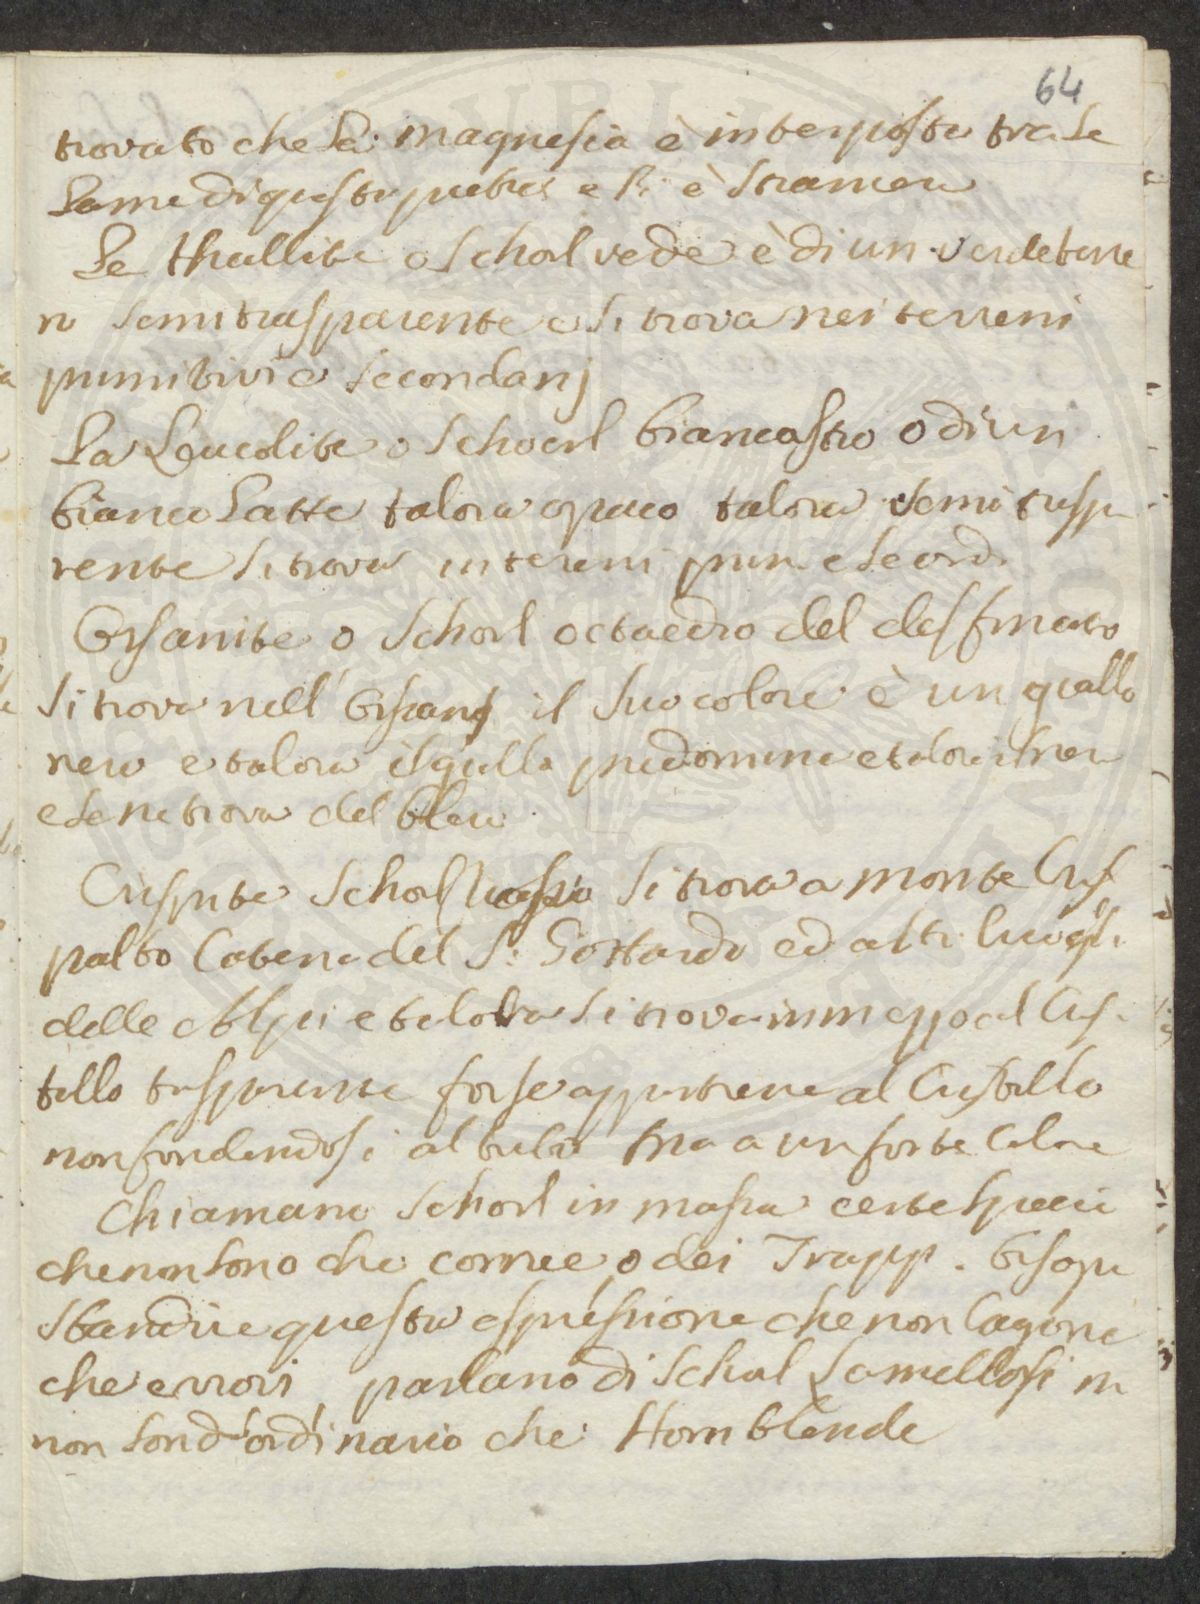 64
trovato che la magnesia è interposta tra le
lame di questa pietra e è straniera
Le thallite o Schorl verde è di un verde tene
ro semitrasparente e si trova nei terreni
primitivi e secondarj
La Leucolite o Schoerl biancastro o di un
bianco latte talora opaco talora semitraspa
rente si trova in tereni prim. e second.
Oisanite o Schorl octaedro del delfinato
si trova nell' Oisans il suo colore è un giallo
nero e talora il giallo predomina e talora il nero
e se ne trova del bleu
Crispite Schorl si trova a monte Cris
palto Catena del S. Gottardo ed altri luoghi
delle Alpi e talora si trova in mezzo al Cris
tallo trasparente forse appartiene al Cristallo
non fondendosi al tubo ma a un forte Calore
Chiamano Schorl in massa certe specie
che non sono che cornee o dei Trapp. bisogna
sbandire questa espressione che non Cagiona
che errori parlano di Schorl Lamellosi
non son d'ordinario che Hornblende